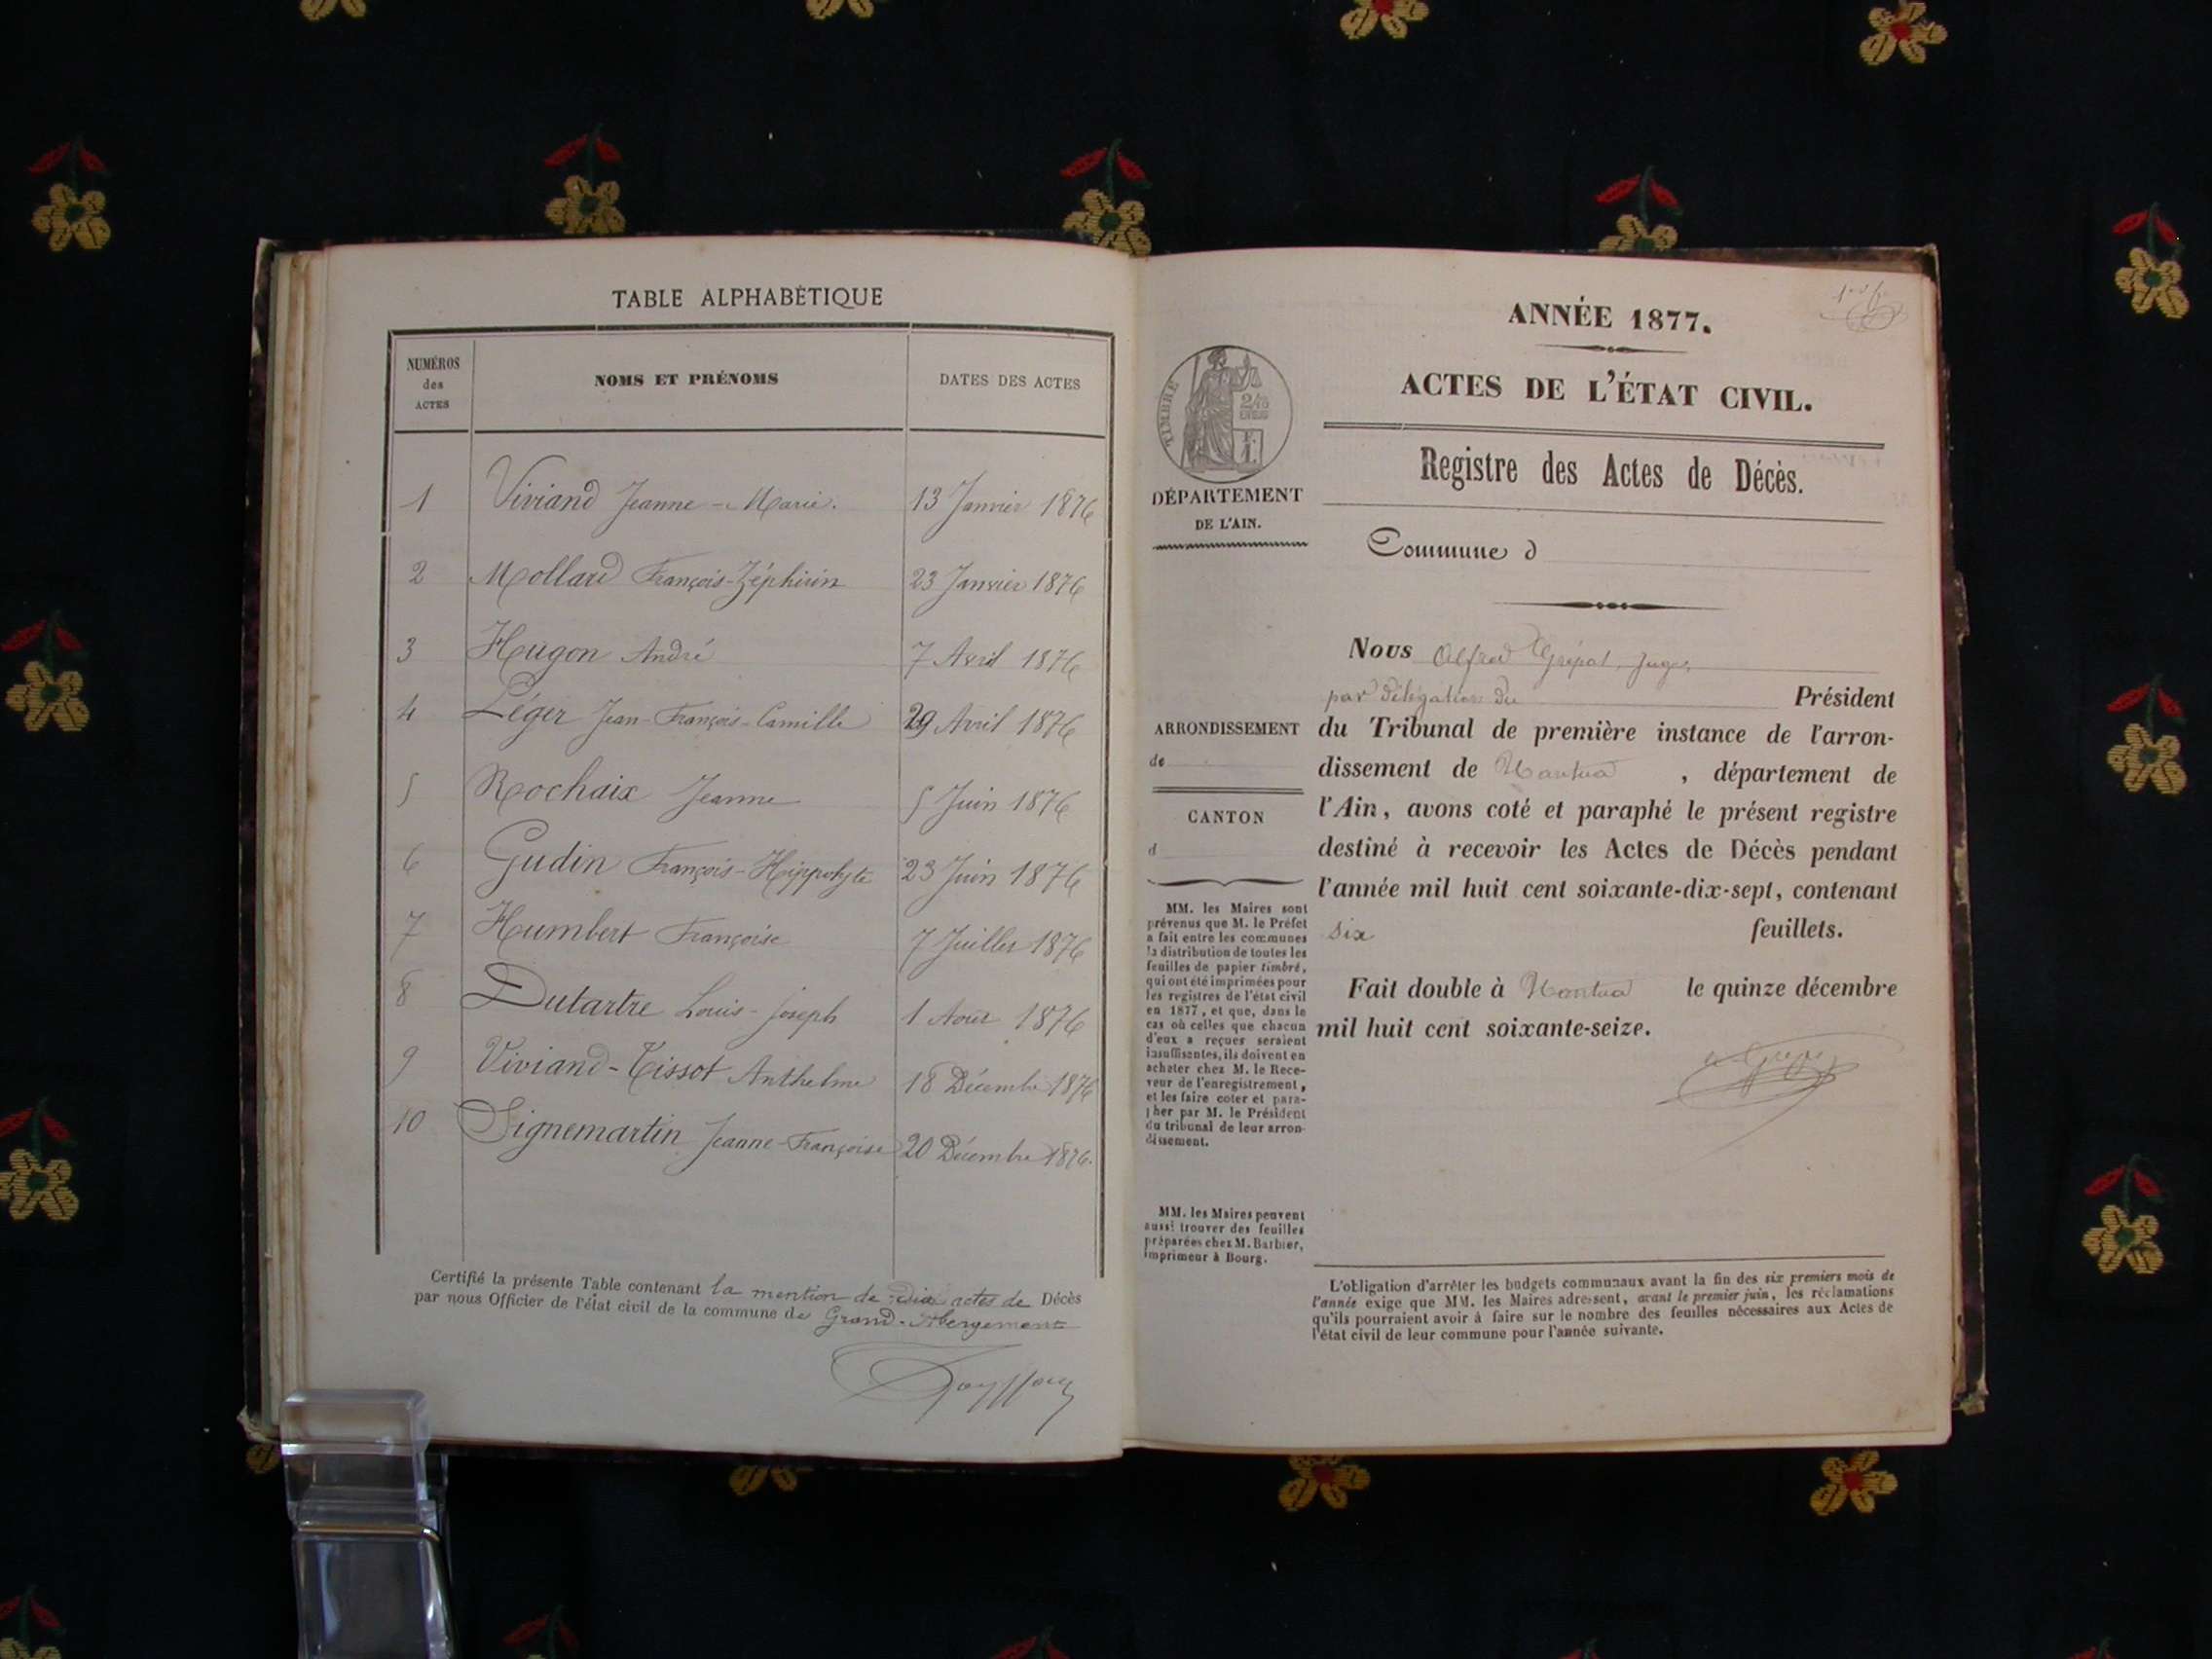 TABLE ALPHABÉTIQUE
NUMÉROS des ACTES
NOMS ET PRÉNOMS
DATES DES ACTES
1 Viviand Jeanne-Marie. 13 Janvier 1876
2 Mollard François-Zéphirin 23 Janvier 1876
3 Hugon André 7 Avril 1876
4 Léger Jean-François-Camille 29 Avril 1876
5 Rochaix Jeanne 5 Juin 1876
6 Gudin François-Hippolyte 23 Juin 1876
7 Humbert Françoise 7 Juillet 1876
8 Dutartre Louis-Joseph 1 Août 1876
9 Viviand-Tissot Anthelme 18 Décembre 1876
10 Signemartin Jeanne-Françoise 20 Décembre 1876.
Certifié la présente Table contenant la mention de dix actes de Décès
par nous Officier de l'état civil de la commune de Grand-Abergement
ANNÉE 1877.
ACTES DE L'ÉTAT CIVIL.
Registre des Actes de Décès.
TIMBRE
DÉPARTEMENT
DE L'AIN.
Commune d
Nous Alfred Grépat, Juge,
par délégation du Président
ARRONDISSEMENT
de
CANTON
d
du Tribunal de première instance de l'arron-
dissement de Nantua, département de
l'Ain, avons coté et paraphé le présent registre
destiné à recevoir les Actes de Décès pendant
l'année mil huit cent soixante-dix-sept, contenant
six feuillets.
Fait double à Nantua le quinze décembre
mil huit cent soixante-seize.
MM. les Maires sont
prévenus que M. le Préfet
a fait entre les communes
la distribution de toutes les
feuilles de papier timbré,
qui ont été imprimées pour
les registres de l'état civil
en 1877, et que, dans le
cas où celles que chacun
d'eux a reçues seraient
insuffisantes, ils doivent en
acheter chez M. le Rece-
veur de l'enregistrement,
et les faire coter et para-
pher par M. le Président
du tribunal de leur arron-
dissement.
MM. les Maires peuvent
aussi trouver des feuilles
préparées chez M. Barbier,
imprimeur à Bourg.
L'obligation d'arrêter les budgets communaux avant la fin des six premiers mois de
l'année exige que MM. les Maires adressent, avant le premier juin, les réclamations
qu'ils pourraient avoir à faire sur le nombre des feuilles nécessaires aux Actes de
l'état civil de leur commune pour l'année suivante.